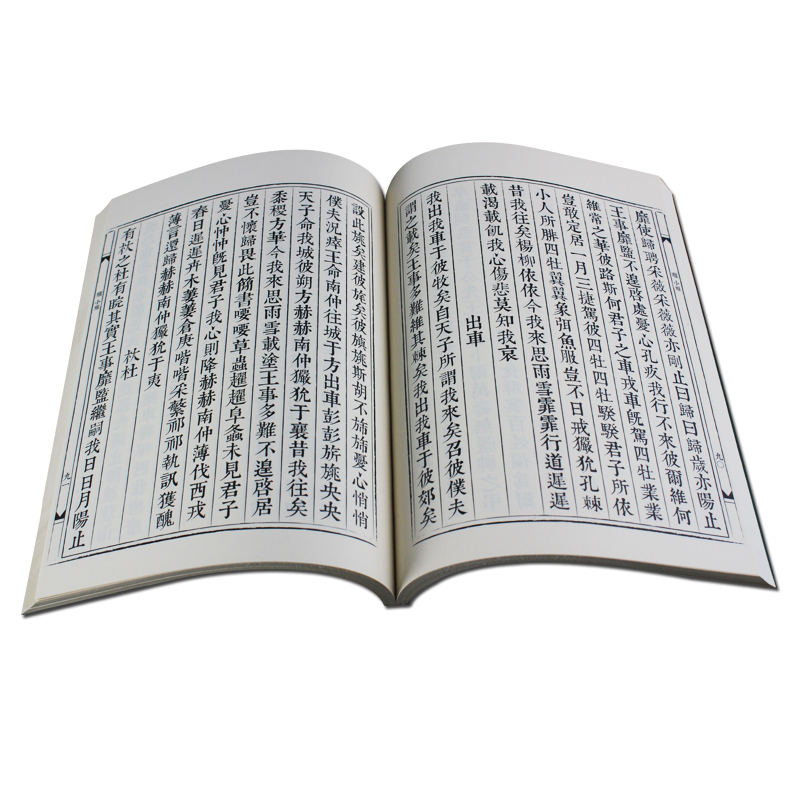 九〇
靡使歸聘采薇采薇薇亦剛止曰歸曰歸歲亦陽止
王事靡盬不遑啓處憂心孔疚我行不來彼爾維何
維常之華彼路斯何君子之車戎車既駕四牡業業
豈敢定居一月三捷駕彼四牡四牡騤騤君子所依
小人所腓四牡翼翼象弭魚服豈不日戒玁狁孔棘
昔我往矣楊柳依依今我來思雨雪霏霏行道遲遲
載渴載飢我心傷悲莫知我哀
出車
我出我車于彼牧矣自天子所謂我來矣召彼僕夫
謂之載矣王事多難維其棘矣我出我車于彼郊矣
設此旐矣建彼旄矣彼旟旐斯胡不旆旆憂心悄悄
僕夫況瘁王命南仲往城于方出車彭彭旂旐央央
天子命我城彼朔方赫赫南仲玁狁于襄昔我往矣
黍稷方華今我來思雨雪載塗王事多難不遑啓居
豈不懷歸畏此簡書喓喓草蟲趯趯阜螽未見君子
憂心忡忡既見君子我心則降赫赫南仲薄伐西戎
春日遲遲卉木萋萋倉庚喈喈采蘩祁祁執訊獲醜
薄言還歸赫赫南仲玁狁于夷
杕杜
有杕之杜有睆其實王事靡盬繼嗣我日日月陽止